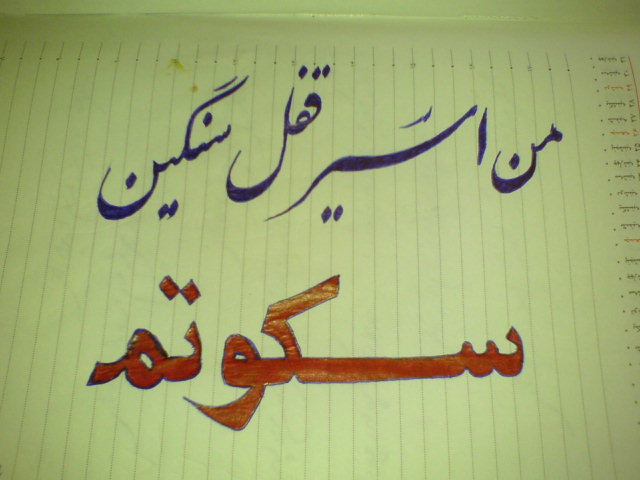 من اسَیر قفل سنگین
سکوتم